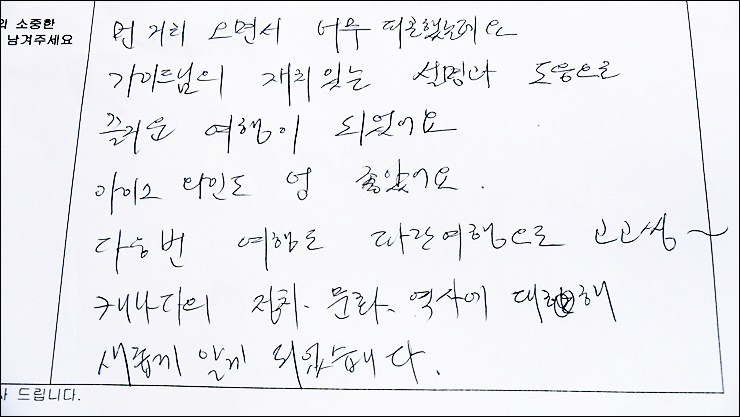 의 소중한
남겨주세요
먼 거리 오면서 너무 피곤했는데요
가이드님의 재미있는 설명과 도움으로
즐거운 여행이 되었어요
아이스 와인도 넘 좋았어요.
다음번 여행도 파란여행으로 고고씽~
캐나다의 정치、문화、역사에 대해
새롭게 알게 되었습니다.
사 드립니다.